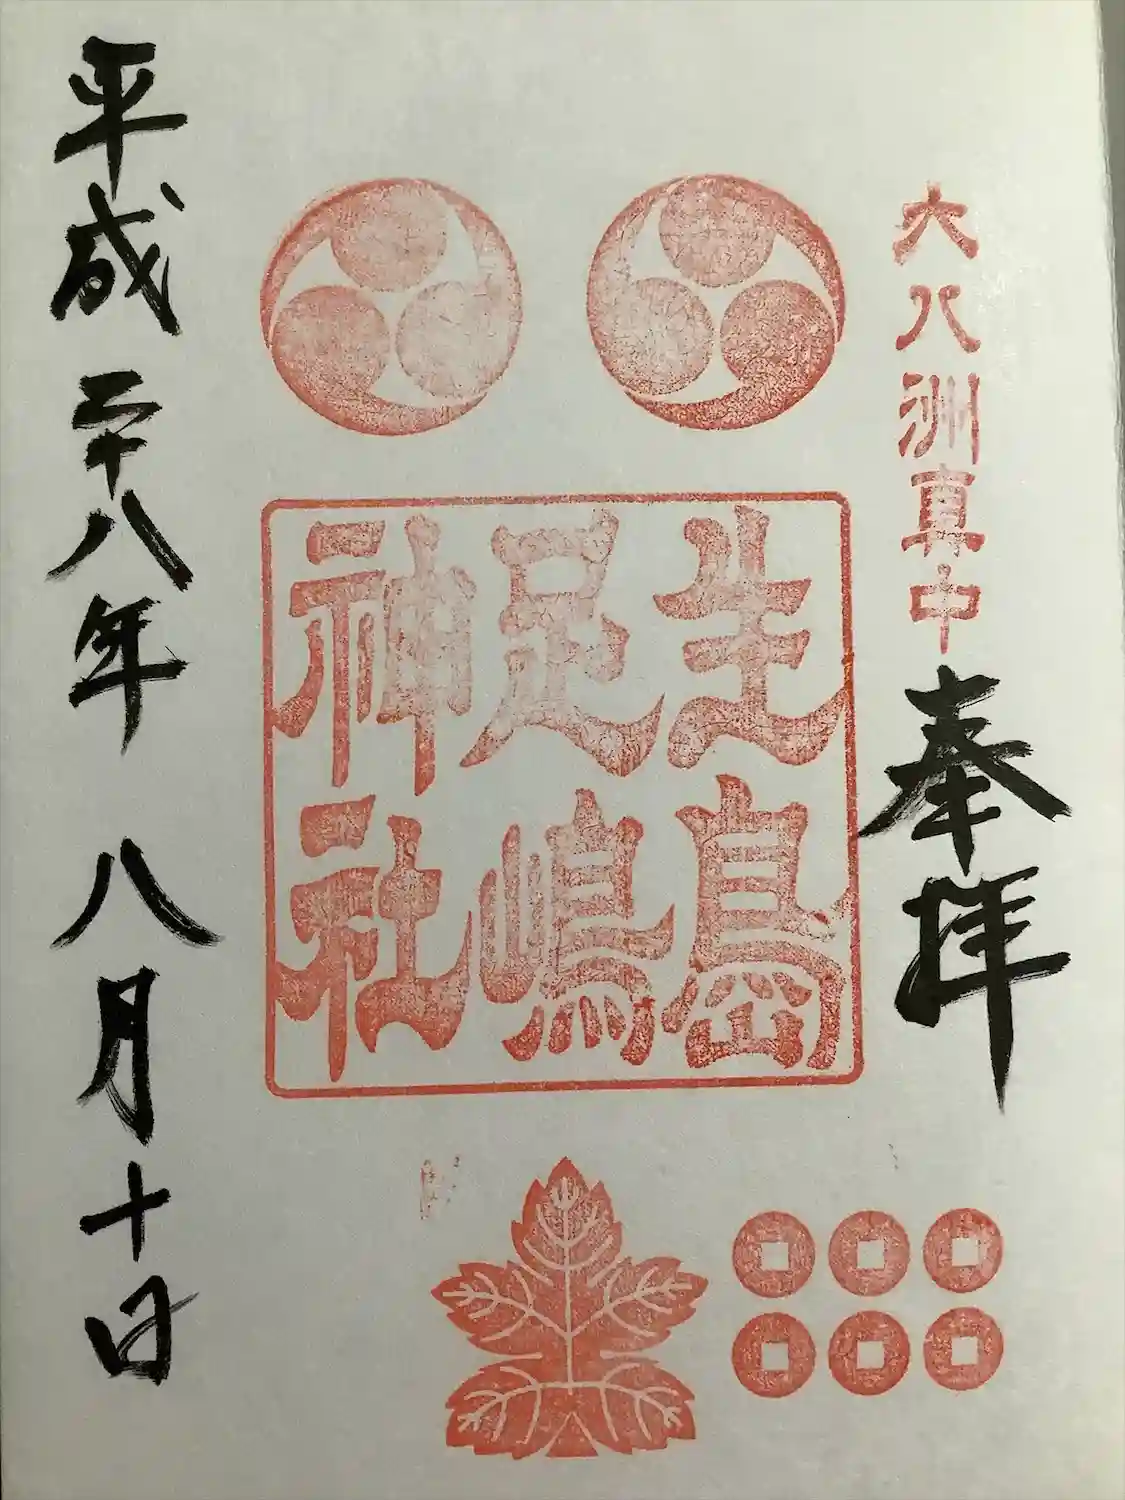 大八洲真中
奉拝
生島
足嶋
神社
平成二十八年 八月十日